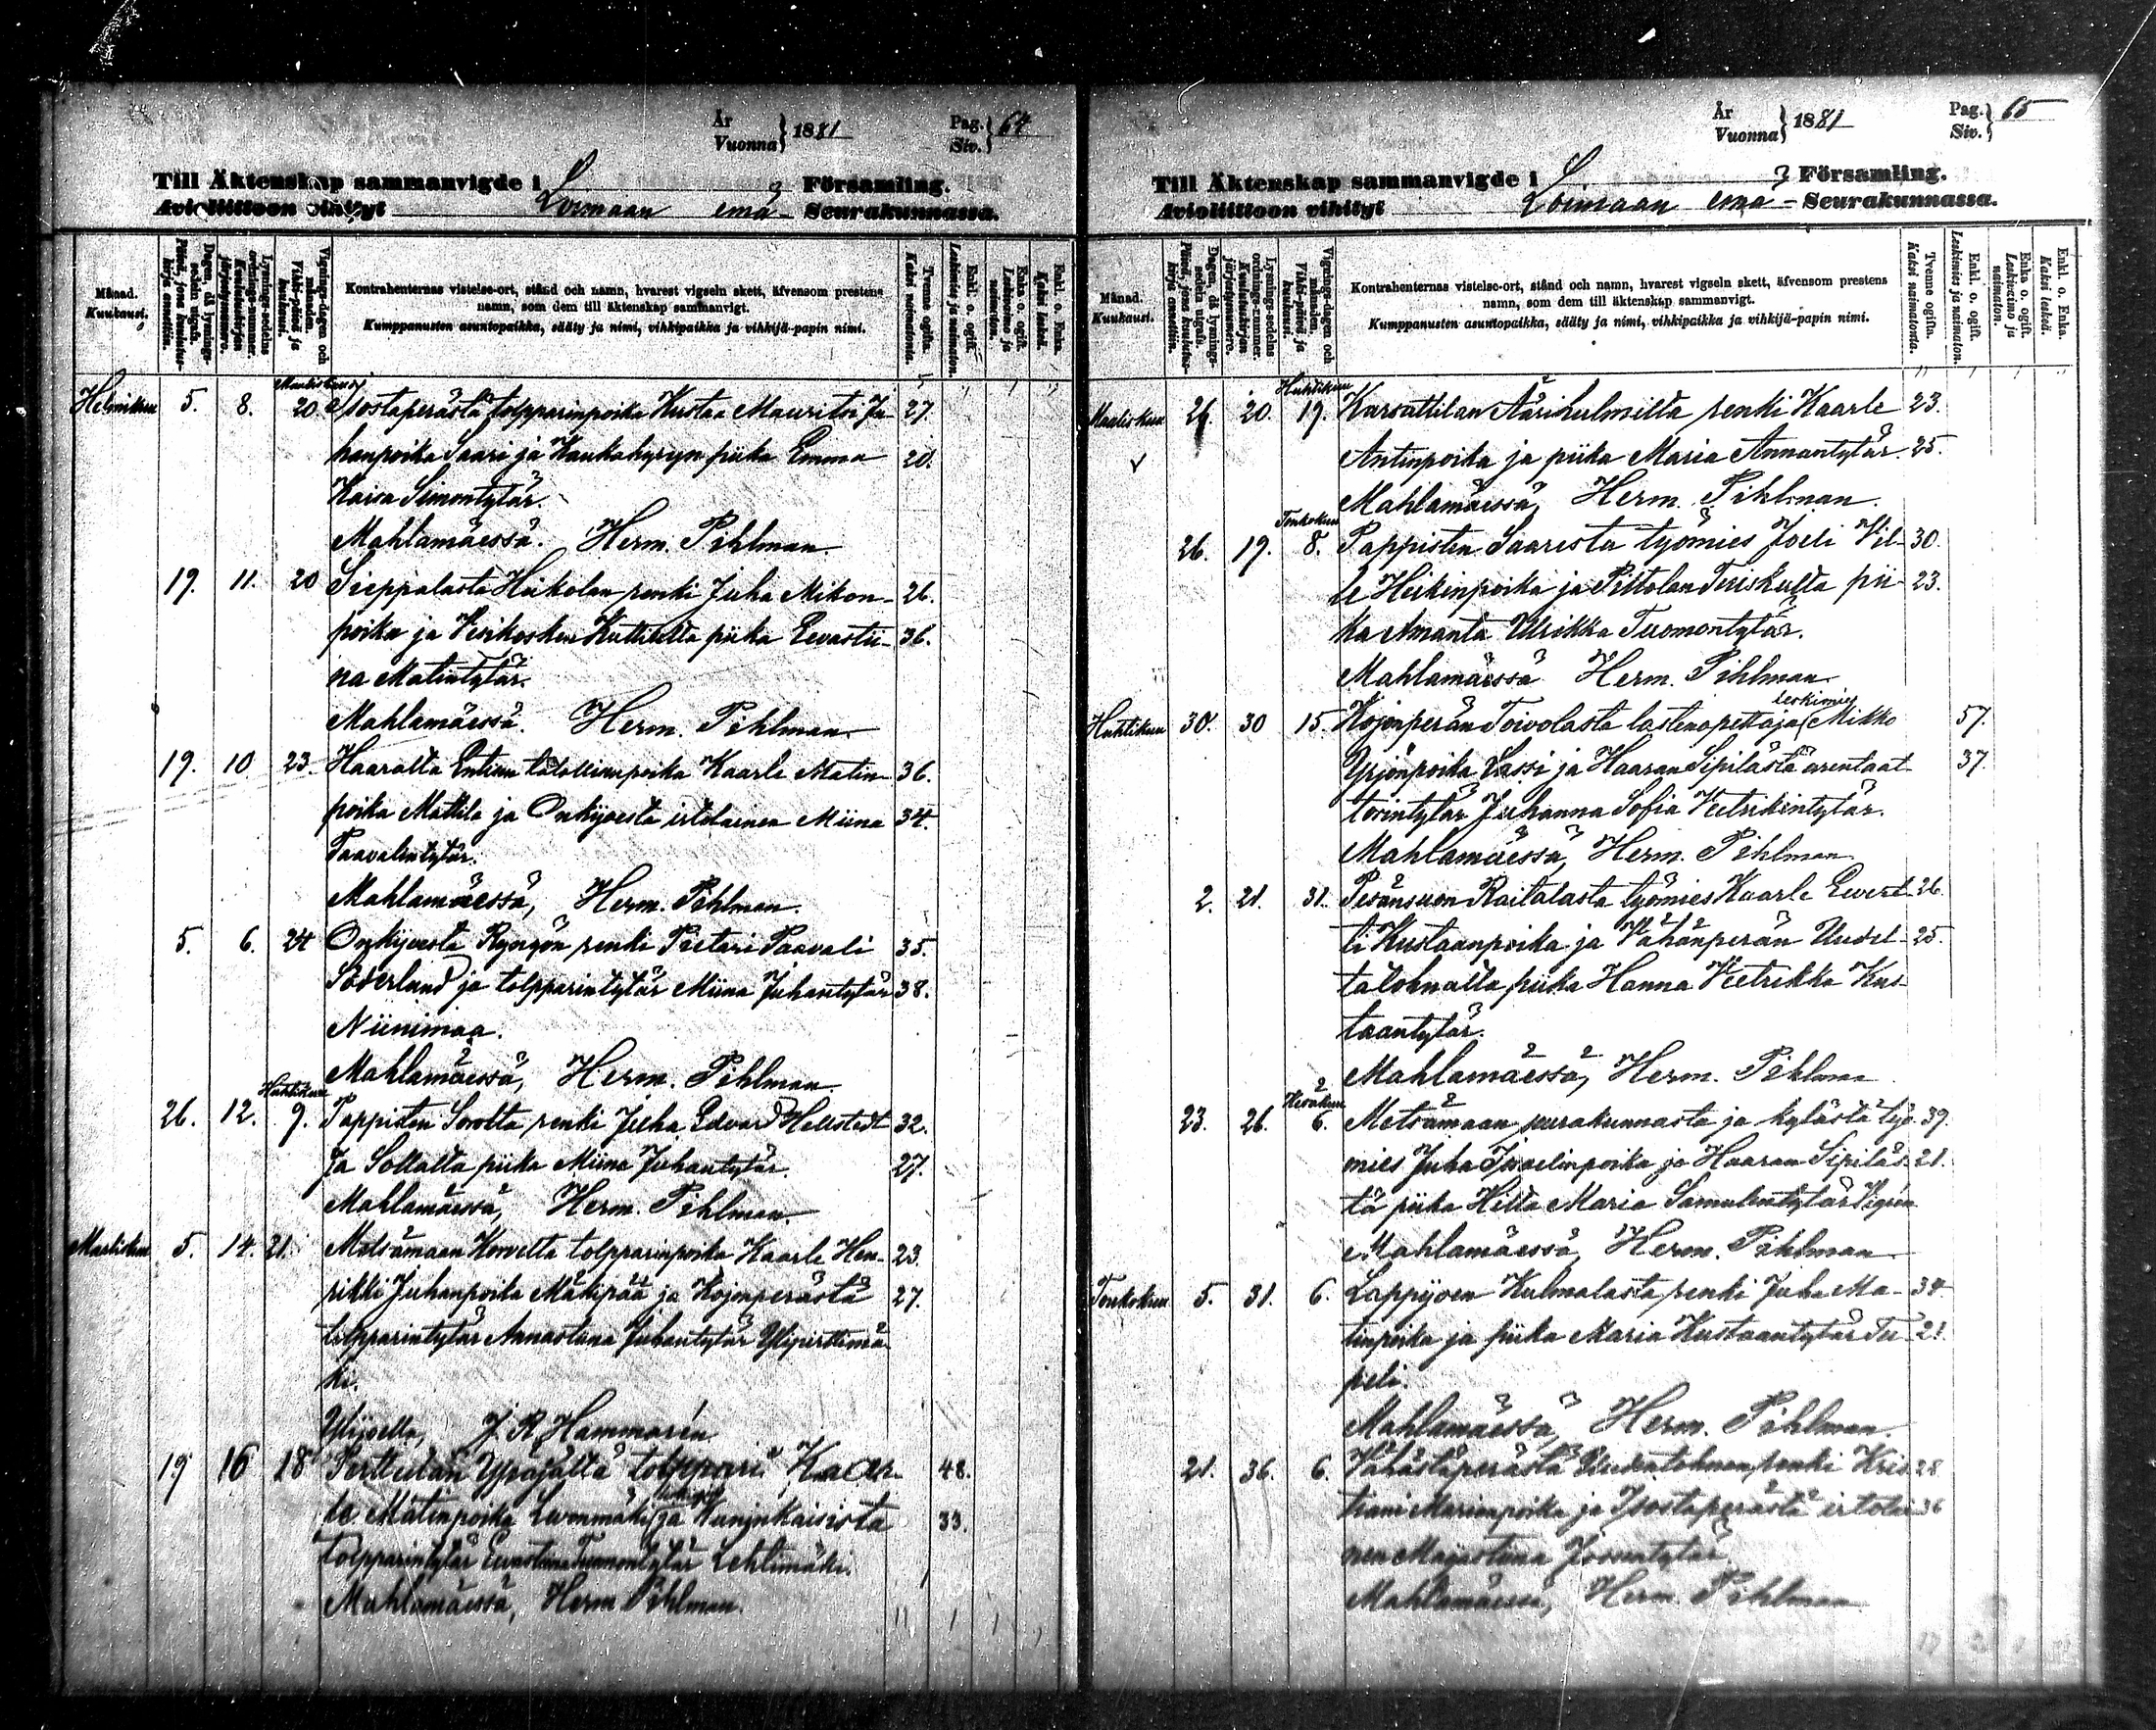 År
Vuonna } 1881
Pag.
Siv. } 64
Till Äktenskap sammanvigde i Församling.
Avioliittoon vihityt Loimaan emä- Seurakunnassa.
Månad.
Kuukausi.
Dagen, då lysnings-sedeln utgafs.
Päivä, jona kuulutus-kirja annettiin.
Lysnings-sedelns ordnings-nummer.
Kuulutuskirjan järjestysnumero.
Vignings-dagen och månaden.
Vihki-päivä ja kuukausi.
Kontrahenternas vistelse-ort, stånd och namn, hvarest vigseln skett, äfvensom prestens
namn, som dem till äktenskap sammanvigt.
Kumppanusten asuntopaikka, sääty ja nimi, vihkipaikka ja vihkijä-papin nimi.
Tvenne ogifta.
Kaksi naimatonta.
Enkl. o. ogift.
Leskimies ja naimaton.
Enka o. ogift.
Leskivaimo ja naimaton.
Enkl. o. Enka.
Kaksi leskeä.
Maaliskuu
Helmikuu 5. 8. 20. Isostaperästä tolpparinpoika Kustaa Mauritsi Ju- 27.
hanpoika Saari ja Haukahyryn piika Emma 20.
Kaisa Simontytär.
Mahlamäessä. Herm. Pihlman
19. 11. 20 Sieppalasta Heikolan renki Juha Mikon- 26.
poika ja Vesikosken piika Eevastii- 36.
na Matintytär.
Mahlamäessä. Herm. Pihlman
19. 10 23. Haaralta talollisenpoika Kaarle Matin- 36.
poika Mattila ja Onkijoesta irtolainen Miina 34.
Taavalintytär.
Mahlamäessä, Herm. Pihlman.
5. 6. 24 Onkijoesta renki Pietari Taavali 35.
Söderlund ja tolpparintytär Miina Juhantytär 38.
Niinimaa.
Mahlamäessä, Herm. Pihlman
Huhtikuu
26. 12. 9. Pappisten renki Juha Edvard Hellstedt 32.
ja piika Miina Juhantytär. 27.
Mahlamäessä, Herm. Pihlman.
Maaliskuu 5. 14. 21. Metsämaan tolpparinpoika Kaarle Hen- 23.
rikki Juhanpoika Mäkipää ja Kojonperästä 27.
tolpparintytär Annastiina Juhantytär Ylipirttimä-
ki.
Ylijoella, J. R. Hammarén
19 16 18 Perttulan Ypäjältä tolppari Kaar- 48.
le Matinpoika ja Kanjinkaisista 33.
tolpparintytär Eevastiina Tuomontytär Lehtimäki.
Mahlamäessä, Herm. Pihlman.
År
Vuonna } 1881
Pag.
Siv. } 65
Till Äktenskap sammanvigde i Församling.
Avioliittoon vihityt Loimaan emä- Seurakunnassa.
Månad.
Kuukausi.
Dagen, då lysnings-sedeln utgafs.
Päivä, jona kuulutus-kirja annettiin.
Lysnings-sedelns ordnings-nummer.
Kuulutuskirjan järjestysnumero.
Vignings-dagen och månaden.
Vihki-päivä ja kuukausi.
Kontrahenternas vistelse-ort, stånd och namn, hvarest vigseln skett, äfvensom prestens
namn, som dem till äktenskap sammanvigt.
Kumppanusten asuntopaikka, sääty ja nimi, vihkipaikka ja vihkijä-papin nimi.
Tvenne ogifta.
Kaksi naimatonta.
Enkl. o. ogift.
Leskimies ja naimaton.
Enka o. ogift.
Leskivaimo ja naimaton.
Enkl. o. Enka.
Kaksi leskeä.
Huhtikuu
Maaliskuu 26. 20. 19. Karsattilan renki Kaarle 23.
Antinpoika ja piika Maria Annantytär. 25.
Mahlamäessä, Herm. Pihlman.
Toukokuu
26. 19. 8. Pappisten Saaresta työmies Joeli Vil- 30.
le Heikinpoika ja pii- 23.
ka Amanta Ulrikka Tuomontytär.
Mahlamäessä Herm. Pihlman
leskimies
Huhtikuu 30. 30 15. Kojonperän Toivolasta lastenopettaja Mikko 57.
Yrjönpoika Lassi ja Haaran Sipilästä arentaat- 37.
torintytär Juhanna Sofia Veetrikintytär.
Mahlamäessä, Herm. Pihlman
2. 21. 31. Pesänsuon Raitalasta työmies Kaarle Evert- 26.
ti Kustaanpoika ja Vähänperän Uudel- 25.
talohnalta piika Hanna Veetrikka Kus-
taantytär.
Mahlamäessä, Herm. Pihlman
Kesäkuu
23. 26. 6. Metsämaan seurakunnasta ja kylästä työ- 39.
mies Juha Israelinpoika ja Haaran Sipiläs- 21.
tä piika Hilta Maria Samulintytär
Mahlamäessä, Herm. Pihlman
Toukokuu 5. 31. 6. Lappijoen Kulmalasta renki Juha Ma- 34.
tinpoika ja piika Maria Kustaantytär Tu- 21.
peli.
Mahlamäessä, Herm. Pihlman.
21. 36. 6. Vähästäperästä renki Kris- 28.
tiani Marianpoika ja Isostaperästä irtolai- 36
nen Majastiina
Mahlamäessä, Herm. Pihlman